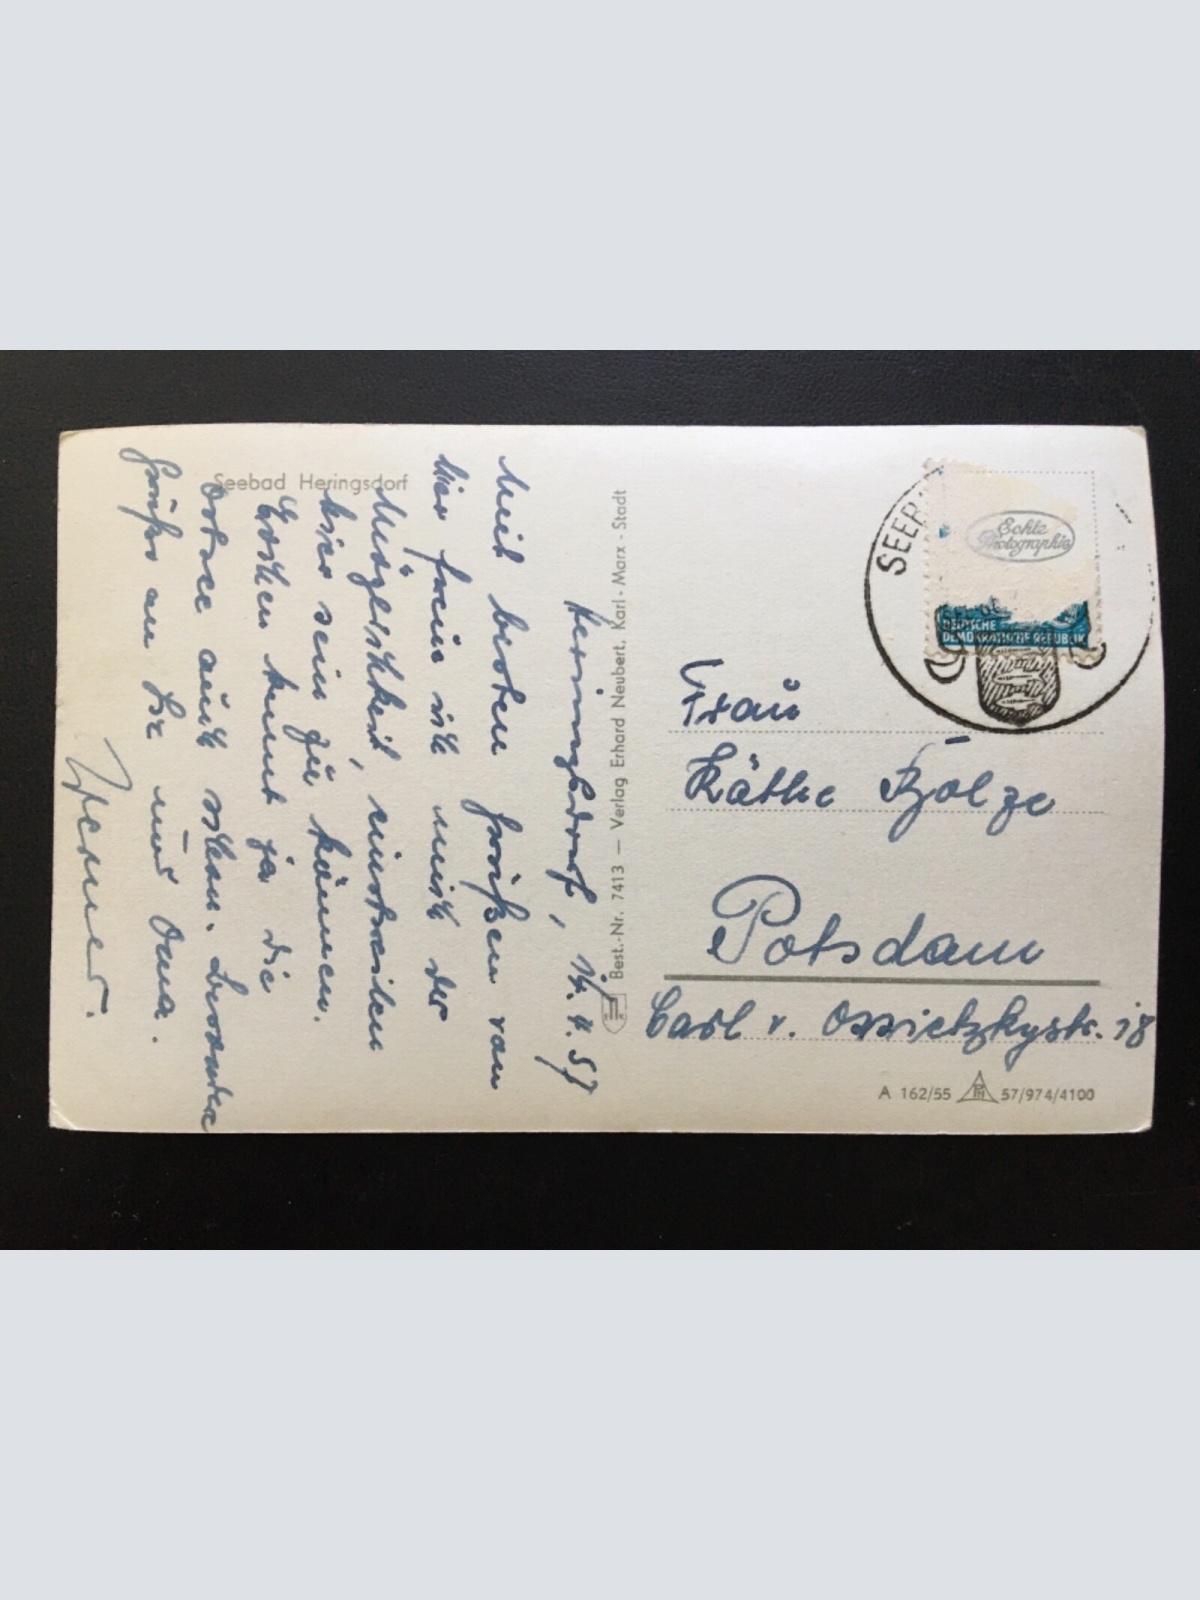 Seebad Heringsdorf
Heringsdorf, 14.4.57
Mit besten Grüßen von
hier freue ich mich der
Möglichkeit, einstweilen
hier sein zu können.
kennt ja die
Ostsee auch schon.
Grüße an Sie und Oma.
Werner.
Best.-Nr. 7413 — Verlag Erhard Neubert, Karl-Marx-Stadt
SEEB
Echte
Photographie
DEUTSCHE
DEMOKRATISCHE REPUBLIK
Frau
Käthe Bölze
Potsdam
Carl v. Ossietzkystr. 18
A 162/55 57/974/4100